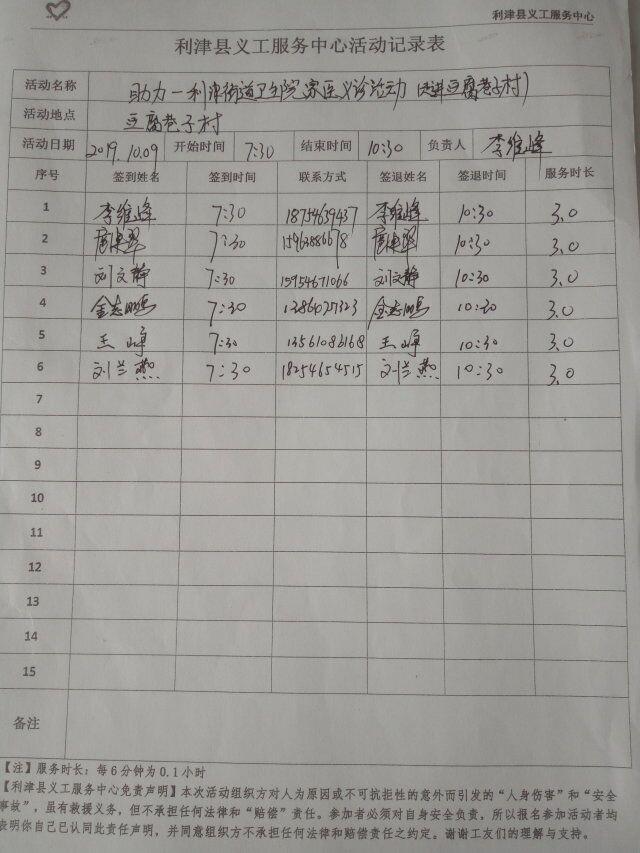 利津县义工服务中心
利津县义工服务中心活动记录表
活动名称 助力一利津街道卫生院家医义诊活动(走进豆腐巷子村)
活动地点 豆腐巷子村
活动日期 2019.10.09 开始时间 7:30 结束时间 10:30 负责人 李维峰
序号 签到姓名 签到时间 联系方式 签退姓名 签退时间 服务时长
1 李维峰 7:30 18754639437 李维峰 10:30 3.0
2 7:30 15963886678 10:30 3.0
3 刘文静 7:30 15954671066 刘文静 10:30 3.0
4 金志鹏 7:30 13864027323 金志鹏 10:30 3.0
5 王峥 7:30 13561086168 王峥 10:30 3.0
6 刘兰燕 7:30 18254654515 刘兰燕 10:30 3.0
7
8
9
10
11
12
13
14
15
备注
【注】服务时长:每6分钟为0.1小时
【利津县义工服务中心免责声明】本次活动组织方对人为原因或不可抗拒性的意外而引发的“人身伤害”和“安全
事故”,虽有救援义务,但不承担任何法律和“赔偿”责任。参加者必须对自身安全负责,所以报名参加活动者均
表明你自己已认同此责任声明,并同意组织方不承担任何法律和赔偿责任之约定。谢谢工友们的理解与支持。